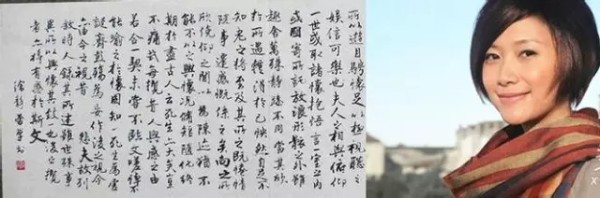 所以游目騁懷足以極視聽之
娱信可樂也夫人之相與俯仰
一世或取諸懷抱悟言一室之内
或因寄所託放浪形骸之外雖
趣舍萬殊静躁不同當其欣
於所遇暫得於己快然自足不
知老之将至及其所之既惓情
随事遷感慨係之矣向之所
欣俛仰之間以為陳迹猶不
能不以之興懷况脩短随化終
期於盡古人云死生亦大矣豈
不痛哉每攬昔人興感之由
若合一契未嘗不臨文嗟悼不
能喻之於懷固知一死生為虚
誕齊彭殤為妄作後之視今
亦由今之視昔 悲夫故列
叙時人錄其所述雖世殊事
異所以興懷其致一也後之攬
者亦将有感於斯文
徐静蕾